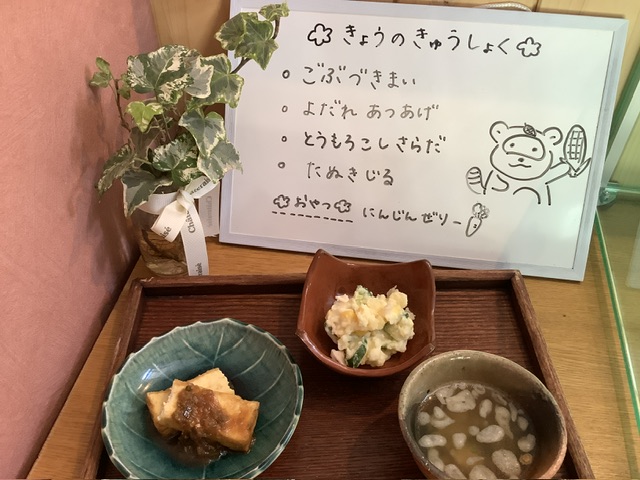 きょうのきゅうしょく
ごぶづきまい
よだれ あつあげ
とうもろこしさらだ
たぬきじる
おやつ にんじんぜりー